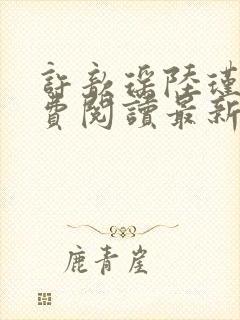 許歆瑤陸瑾
費閱讀最新
鹿青崖